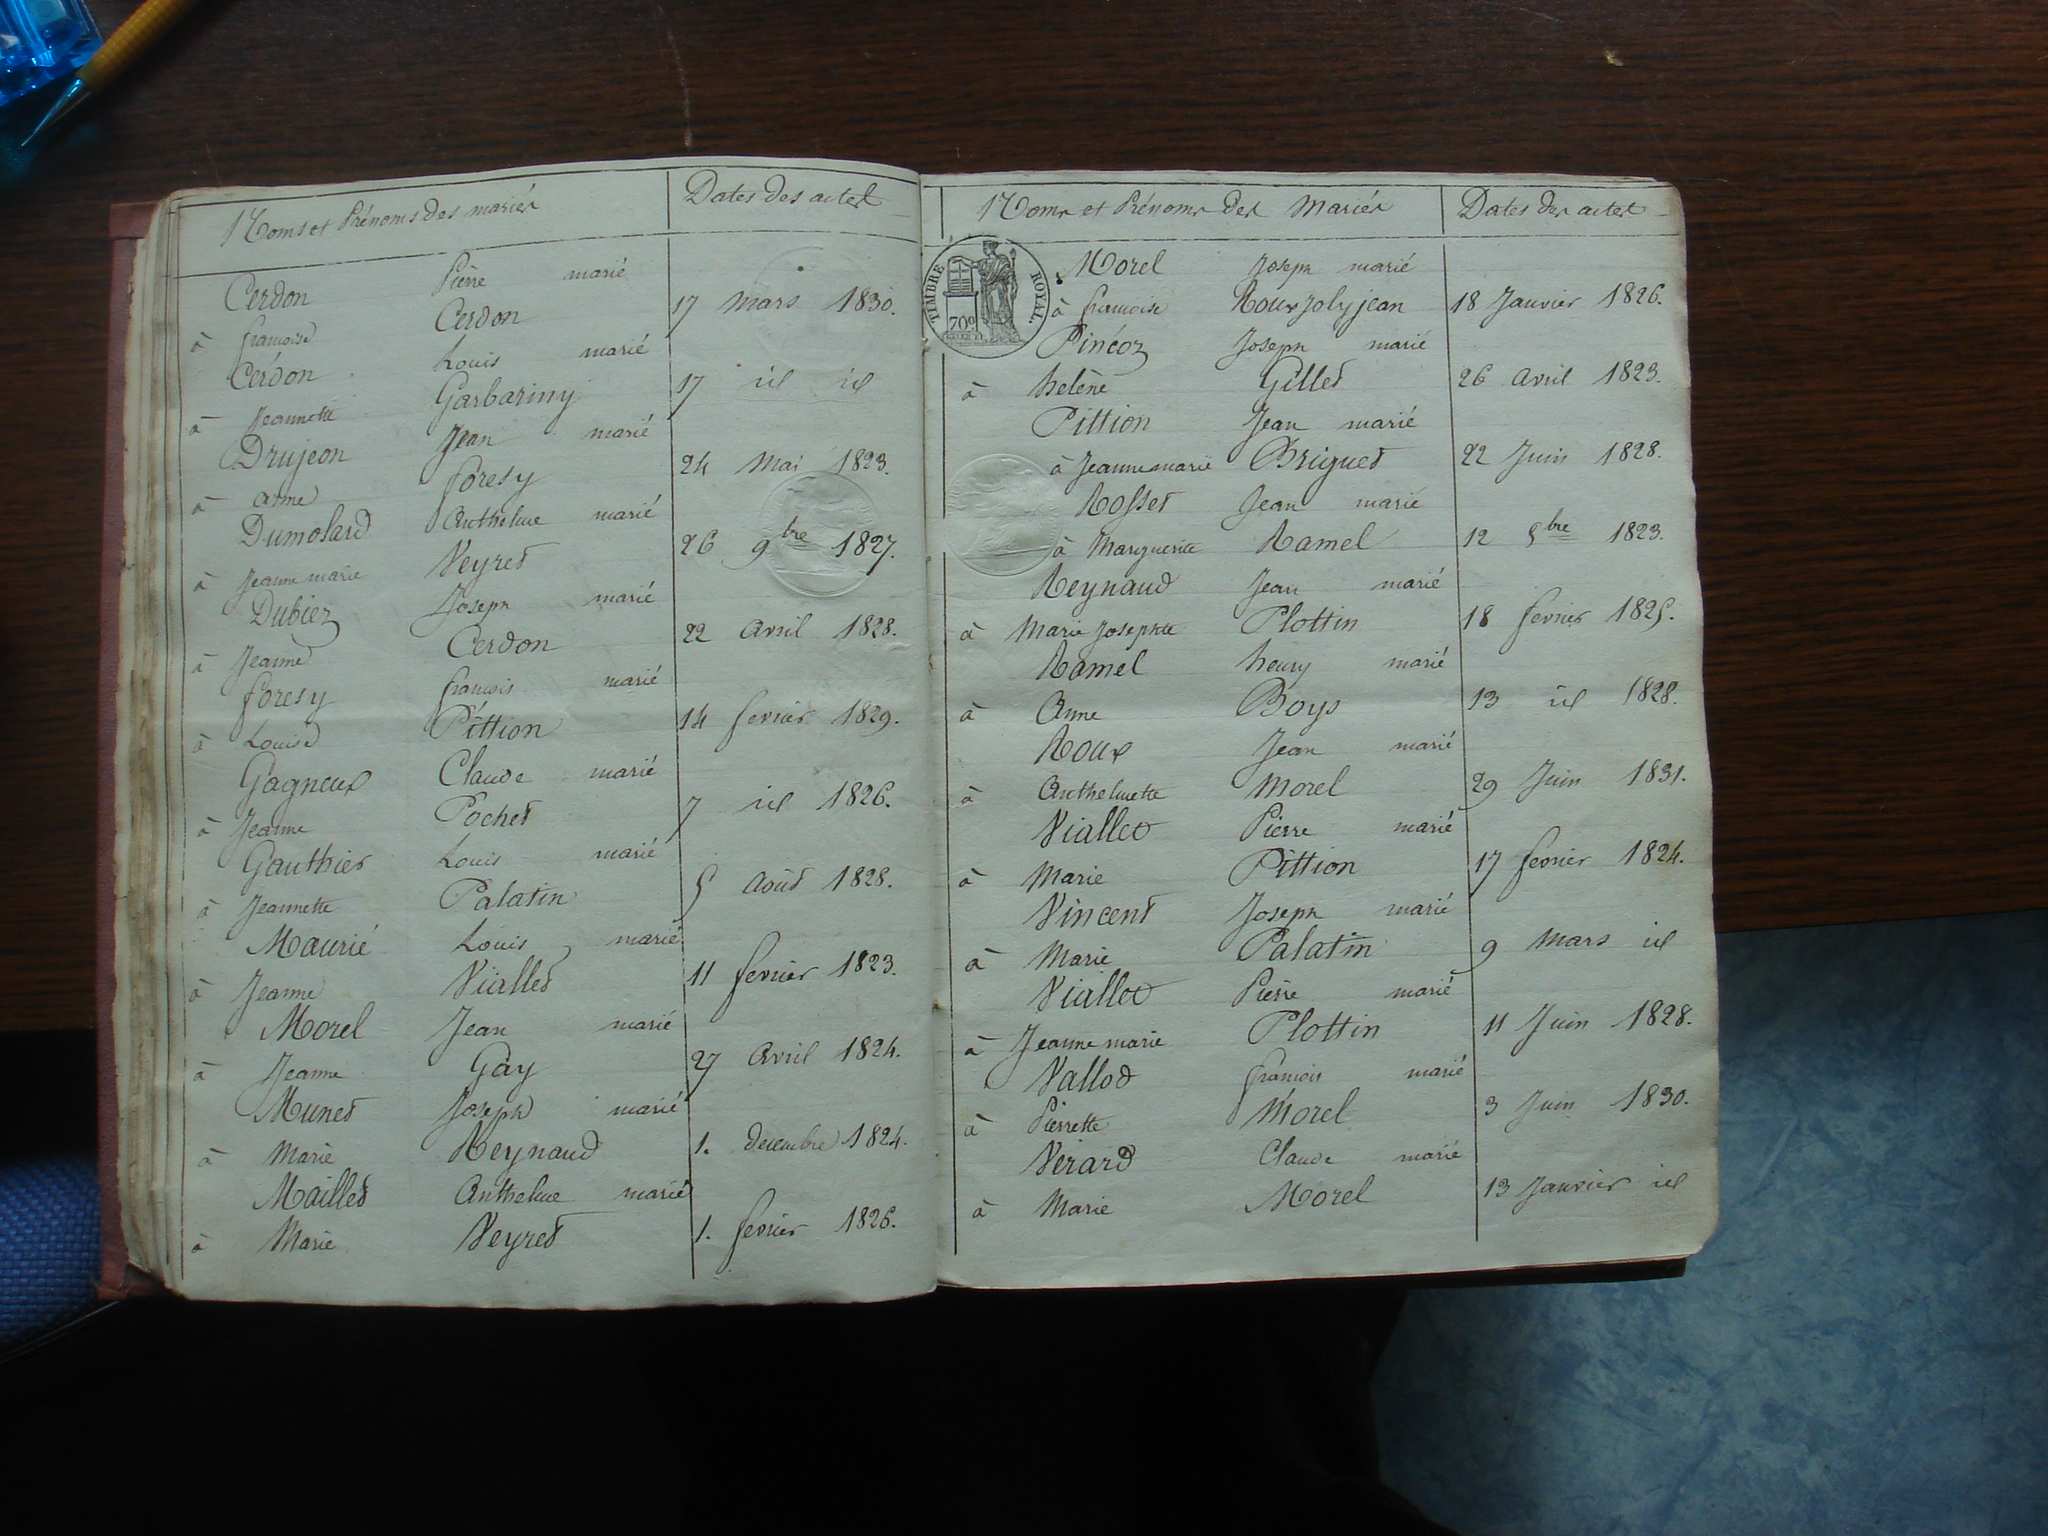 Noms et Prénoms des mariés Dates des actes
Cerdon Pierre marié
à françoise Cerdon 17 Mars 1830.
Cerdon Louis marié
à Jeannette Garbariny 17 id id
Drujeon Jean marié
à anne foresy 24 Mai 1823.
Dumolard Anthelme marié
à Jeanne marie Veyret 26 9bre 1827.
Dubiez Joseph marié
à Jeanne Cerdon 22 Avril 1828.
foresy françois marié
à Louise Pittion 14 fevrier 1829.
Gagneux Claude marié
à Jeanne Pochet 7 id 1826.
Gauthier Louis marié
à Jeannette Palatin 5 Août 1828.
Maurié Louis marié
à Jeanne Viallet 11 fevrier 1823.
Morel Jean marié
à Jeanne Gay 27 Avril 1824.
Munet Joseph marié
à Marie Reynaud 1. decembre 1824.
Maillet Anthelme marié
à Marie Veyret 1. fevrier 1826.
Noms et Prénoms des Mariés Dates des actes
TIMBRE ROYAL.
70c
Morel Joseph marié
à françoise Roux Jolyjean 18 Janvier 1826.
Pincoz Joseph marié
à helène Gillet 26 Avril 1823.
Pittion Jean marié
à Jeanne marie Briguet 22 Juin 1828.
Rosset Jean marié
à Marguerite Ramel 12 8bre 1823.
Reynaud Jean marié
à Marie Josephte Plottin 18 fevrier 1825.
Ramel henry marié
à Anne Boys 13 id 1828.
Roux Jean marié
à Anthelmette Morel 29 Juin 1831.
Viallet Pierre marié
à Marie Pittion 17 fevrier 1824.
Vincent Joseph marié
à Marie Palatin 9 Mars id
Viallet Pierre marié
à Jeanne marie Plottin 11 Juin 1828.
Vallod françois marié
à Pierrette Morel 3 Juin 1830.
Verard Claude marié
à Marie Morel 13 Janvier id